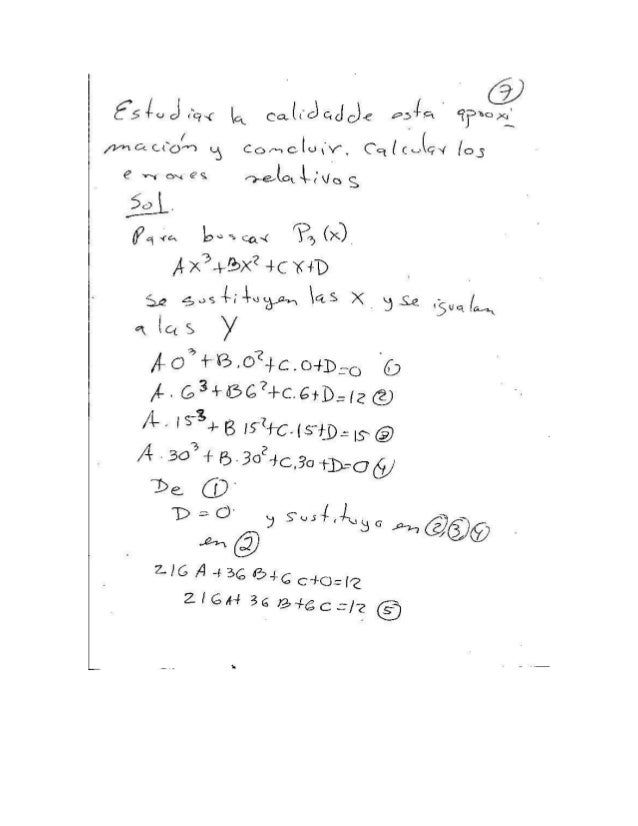 7
Estudiar la calidadde esta aproxi
mación y concluir. Calcular los
errores relativos
Sol.
Para buscar P₃(x)
AX³+BX²+CX+D
Se sustituyen las X y se igualan
a las Y
A0³+B.0²+C.0+D=0 ①
A.6³+B6²+C.6+D=12 ②
A.15³+B15²+C.15+D=15 ③
A.30³+B.30²+C.30+D=0 ④
De ①
D=0 y sustituyo en ②,③,④
en ②
216A+36B+6C+0=12
216A+36B+6C=12 ⑤